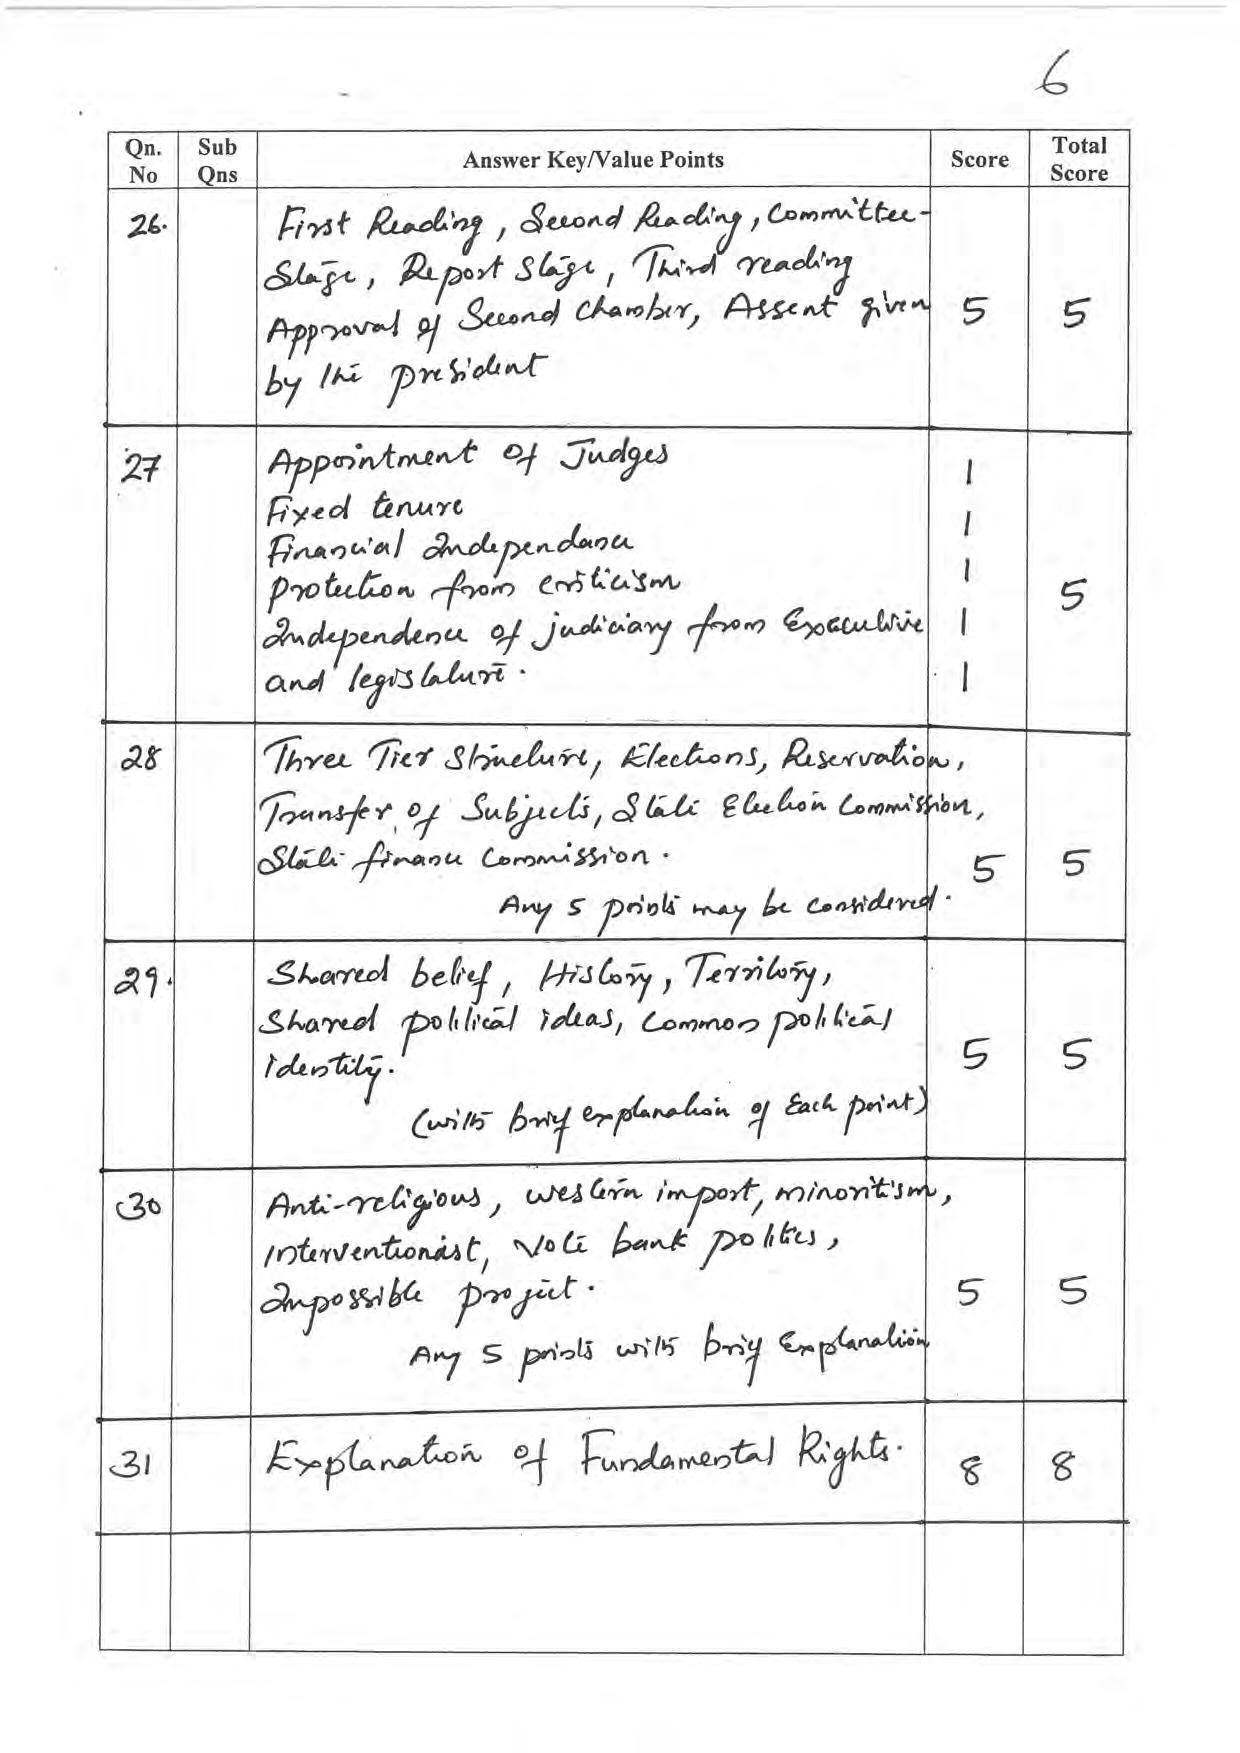 6
Qn. No | Sub Qns | Answer Key/Value Points | Score | Total Score
26. First Reading, Second Reading, Committee-
Stage, Report Stage, Third reading
Approval of Second Chamber, Assent given 5 5
by the president
27 Appointment of Judges 1
Fixed tenure 1
Financial Independance 1
Protection from criticism 5
Independence of judiciary from Executive 1
and legislature. 1
28 Three Tier Structure, Elections, Reservation,
Transfer of Subjects, State Election Commission,
State finance Commission. 5 5
Any 5 points may be considered.
29. Shared belief, History, Territory,
Shared political ideas, Common political
identity. 5 5
(with brief explanation of Each point)
30 Anti-religious, western import, minoritism,
interventionist, Vote bank politics,
Impossible project. 5 5
Any 5 points with brief Explanation
31 Explanation of Fundamental Rights. 8 8